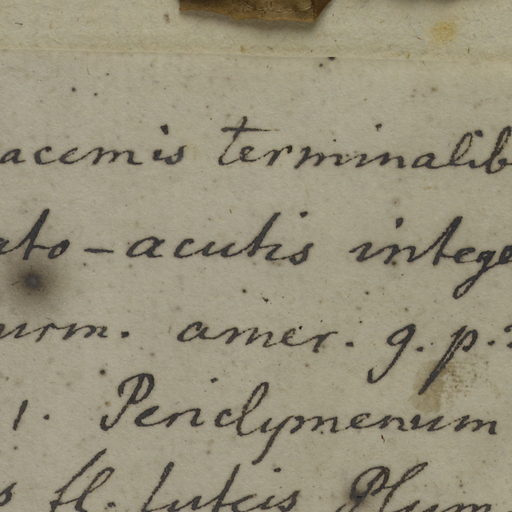 acemis terminalib
ato-acutis intege
urm. amer. g. p.
1. Periclymenum
s fl. luteis Plum